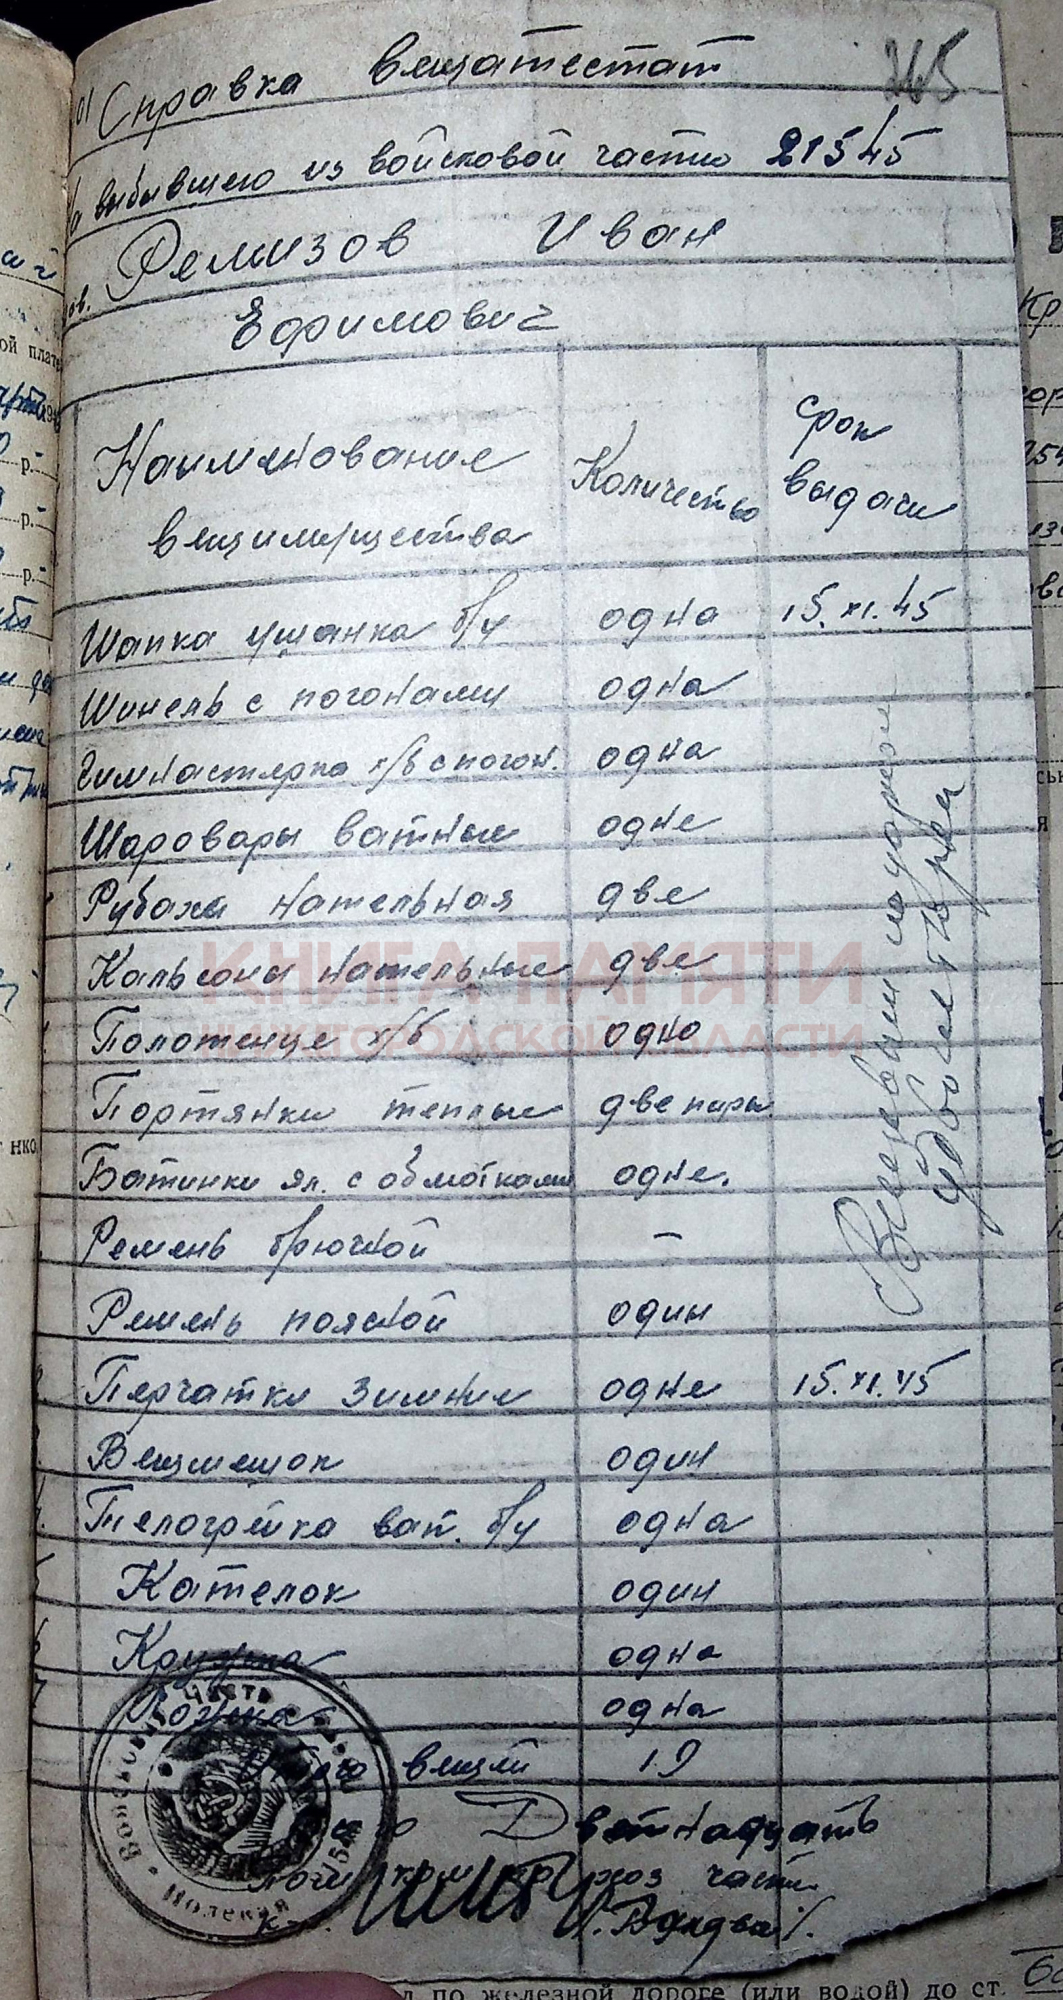 Справка вещатестат
265
выбывшего из войсковой части 21545
Ремизов Иван
Ефимович
Наименование вещимущества
Количество
срок выдачи
Шапка ушанка б/у одна 15.XI.45
Шинель с погонами одна
Гимнастерка х/б с погон. одна
Шаровары ватные одне
Рубаха нательная две
Кальсоны нательные две
Полотенце х/б одно
Портянки теплые две пары
Ботинки ял. с обмотками одне.
Ремень брючной —
Ремень поясной один
Перчатки зимние одне 15.XI.45
Вещмешок один
Телогрейка ват. б/у одна
Кателок один
Кружка одна
Ложка одна
Итого вещей 19
часть
Войсковая
Полевая
КНИГА ПАМЯТИ
НИЖЕГОРОДСКОЙ ОБЛАСТИ
по железной дороге (или водой) до ст.